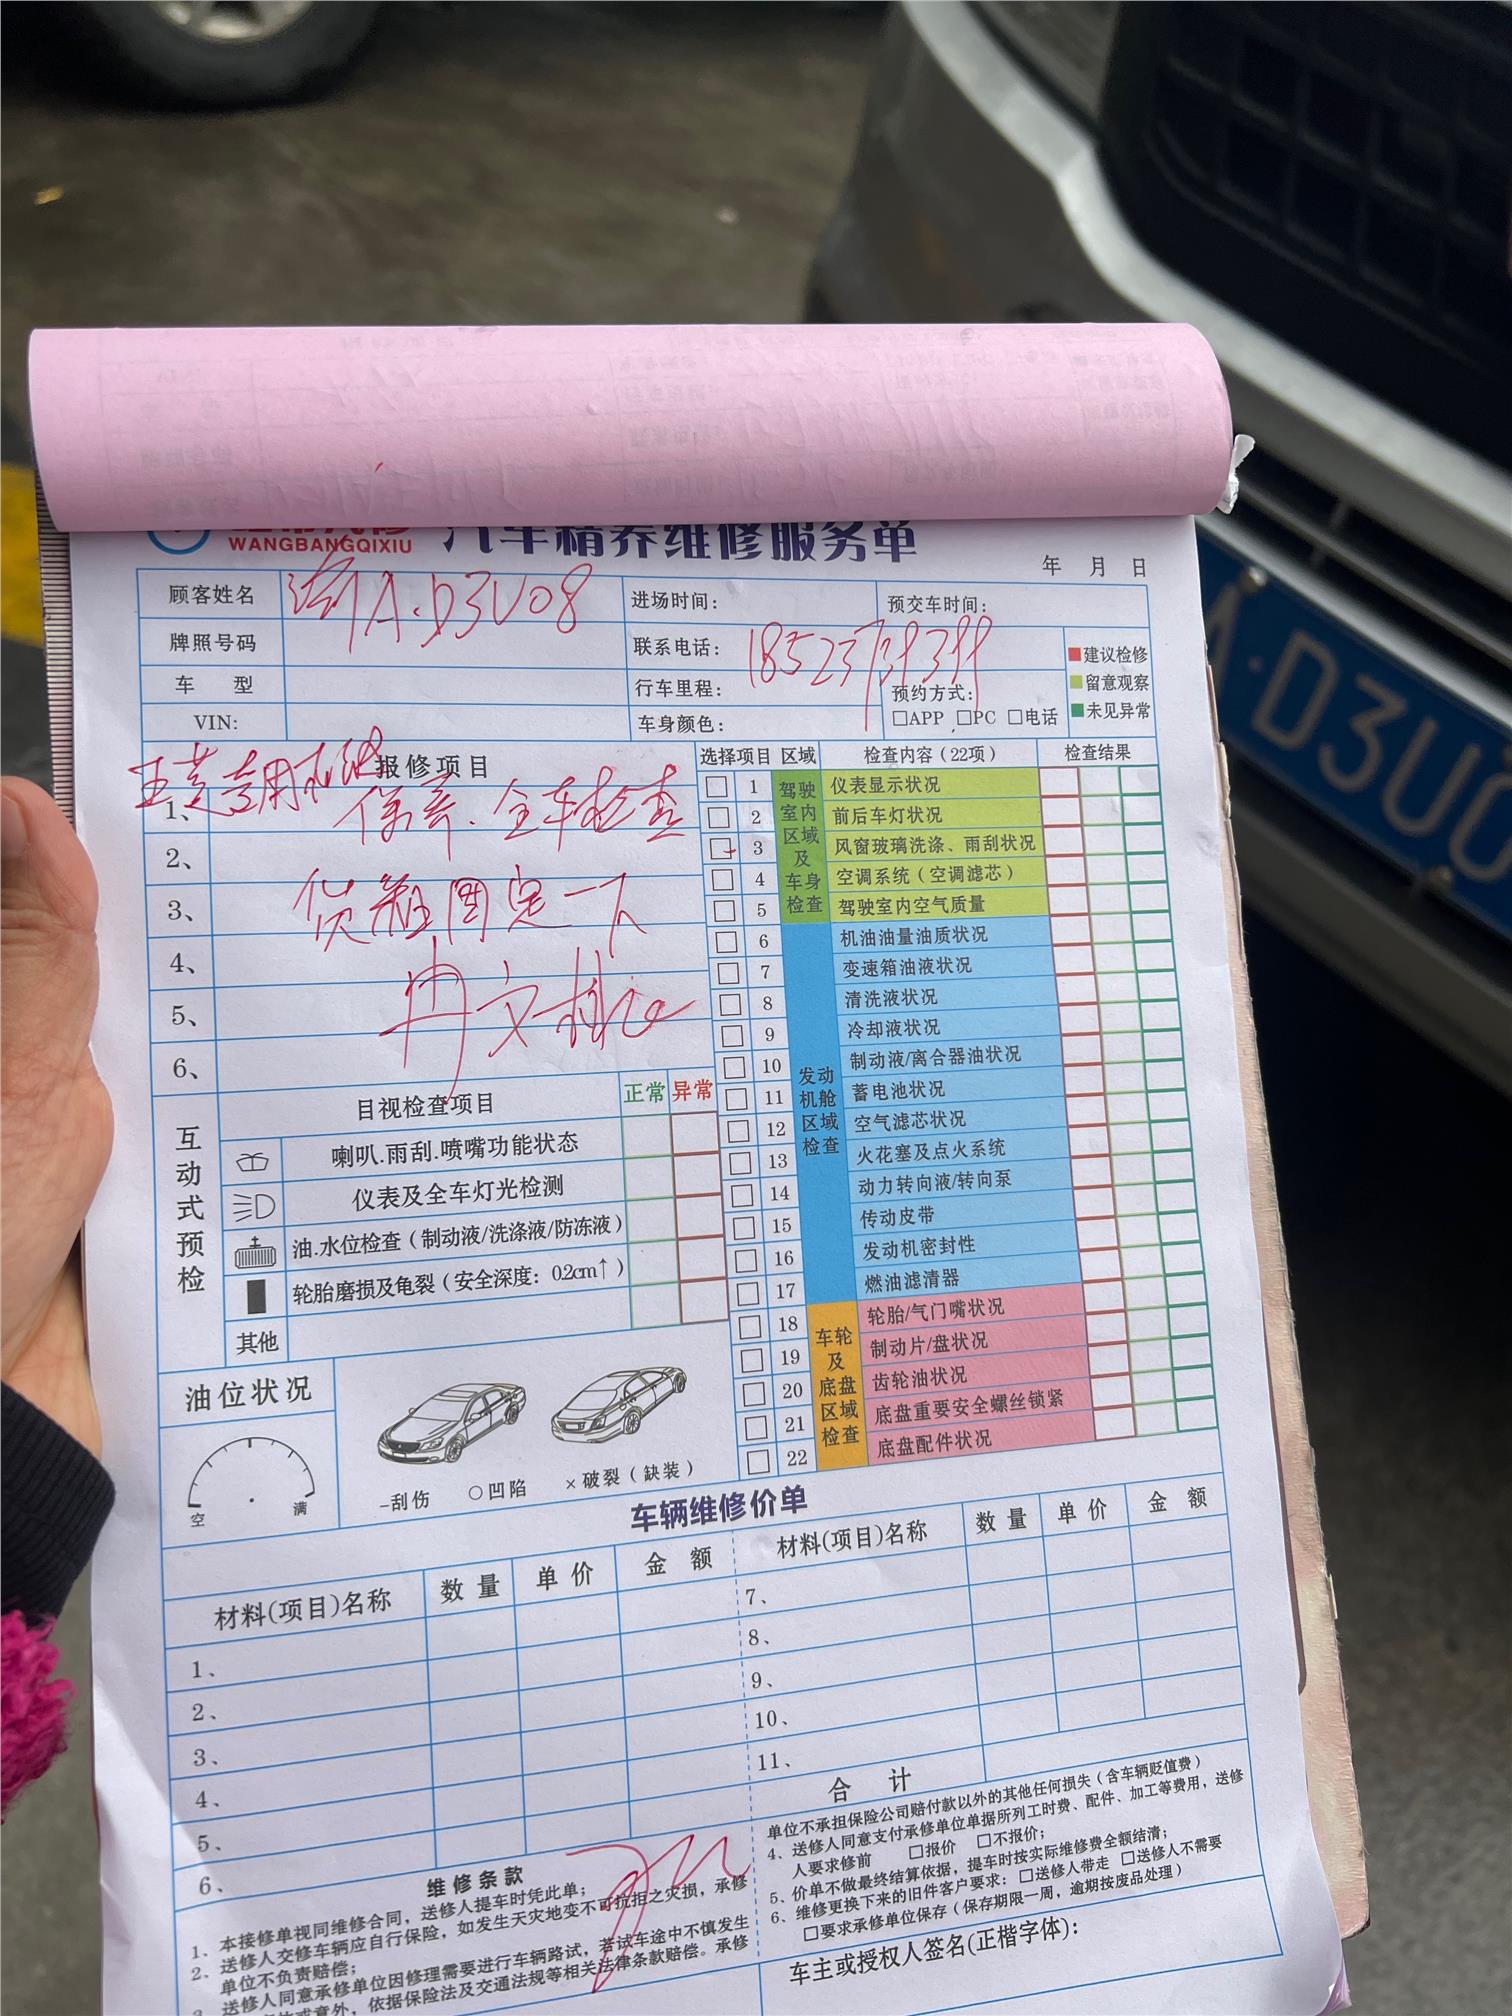 WANGBANGQIXIU 汽车精养维修服务单
年 月 日
顾客姓名 渝A·D3U08 进场时间： 预交车时间：
牌照号码 联系电话：
车 型 行车里程： 预约方式：
VIN: 车身颜色： □APP □PC □电话
建议检修
留意观察
未见异常
报修项目
1、 保养·全车检查
2、
3、 货箱固定一下
4、
5、
6、
选择项目 区域 检查内容（22项） 检查结果
驾驶室内区域及车身检查
1 仪表显示状况
2 前后车灯状况
3 风窗玻璃洗涤、雨刮状况
4 空调系统（空调滤芯）
5 驾驶室内空气质量
发动机舱区域检查
6 机油油量油质状况
7 变速箱油液状况
8 清洗液状况
9 冷却液状况
10 制动液/离合器油状况
11 蓄电池状况
12 空气滤芯状况
13 火花塞及点火系统
14 动力转向液/转向泵
15 传动皮带
16 发动机密封性
17 燃油滤清器
车轮及底盘区域检查
18 轮胎/气门嘴状况
19 制动片/盘状况
20 齿轮油状况
21 底盘重要安全螺丝锁紧
22 底盘配件状况
互动式预检
目视检查项目 正常 异常
喇叭.雨刮.喷嘴功能状态
仪表及全车灯光检测
油.水位检查（制动液/洗涤液/防冻液）
轮胎磨损及龟裂（安全深度：0.2cm↑）
其他
油位状况
空 满
-刮伤 ○凹陷 ×破裂（缺装）
车辆维修价单
材料(项目)名称 数量 单价 金额 材料(项目)名称 数量 单价 金额
1、 7、
2、 8、
3、 9、
4、 10、
5、 11、
6、 合计
维修条款
1、本接修单视同维修合同，送修人提车时凭此单；
2、送修人交修车辆应自行保险，如发生天灾地变不可抗拒之灾损，承修
单位不负责赔偿；
3、送修人同意承修单位因修理需要进行车辆路试，若试车途中不慎发生
意外，依据保险法及交通法规等相关法律条款赔偿。承修
单位不承担保险公司赔付款以外的其他任何损失（含车辆贬值费）
4、送修人同意支付承修单位单据所列工时费、配件、加工等费用，送修
人要求修前 □报价 □不报价；
5、价单不做最终结算依据，提车时按实际维修费全额结清；
6、维修更换下来的旧件客户要求：□送修人带走 □送修人不需要
□要求承修单位保存（保存期限一周，逾期按废品处理）
车主或授权人签名(正楷字体)：
A·D3U0